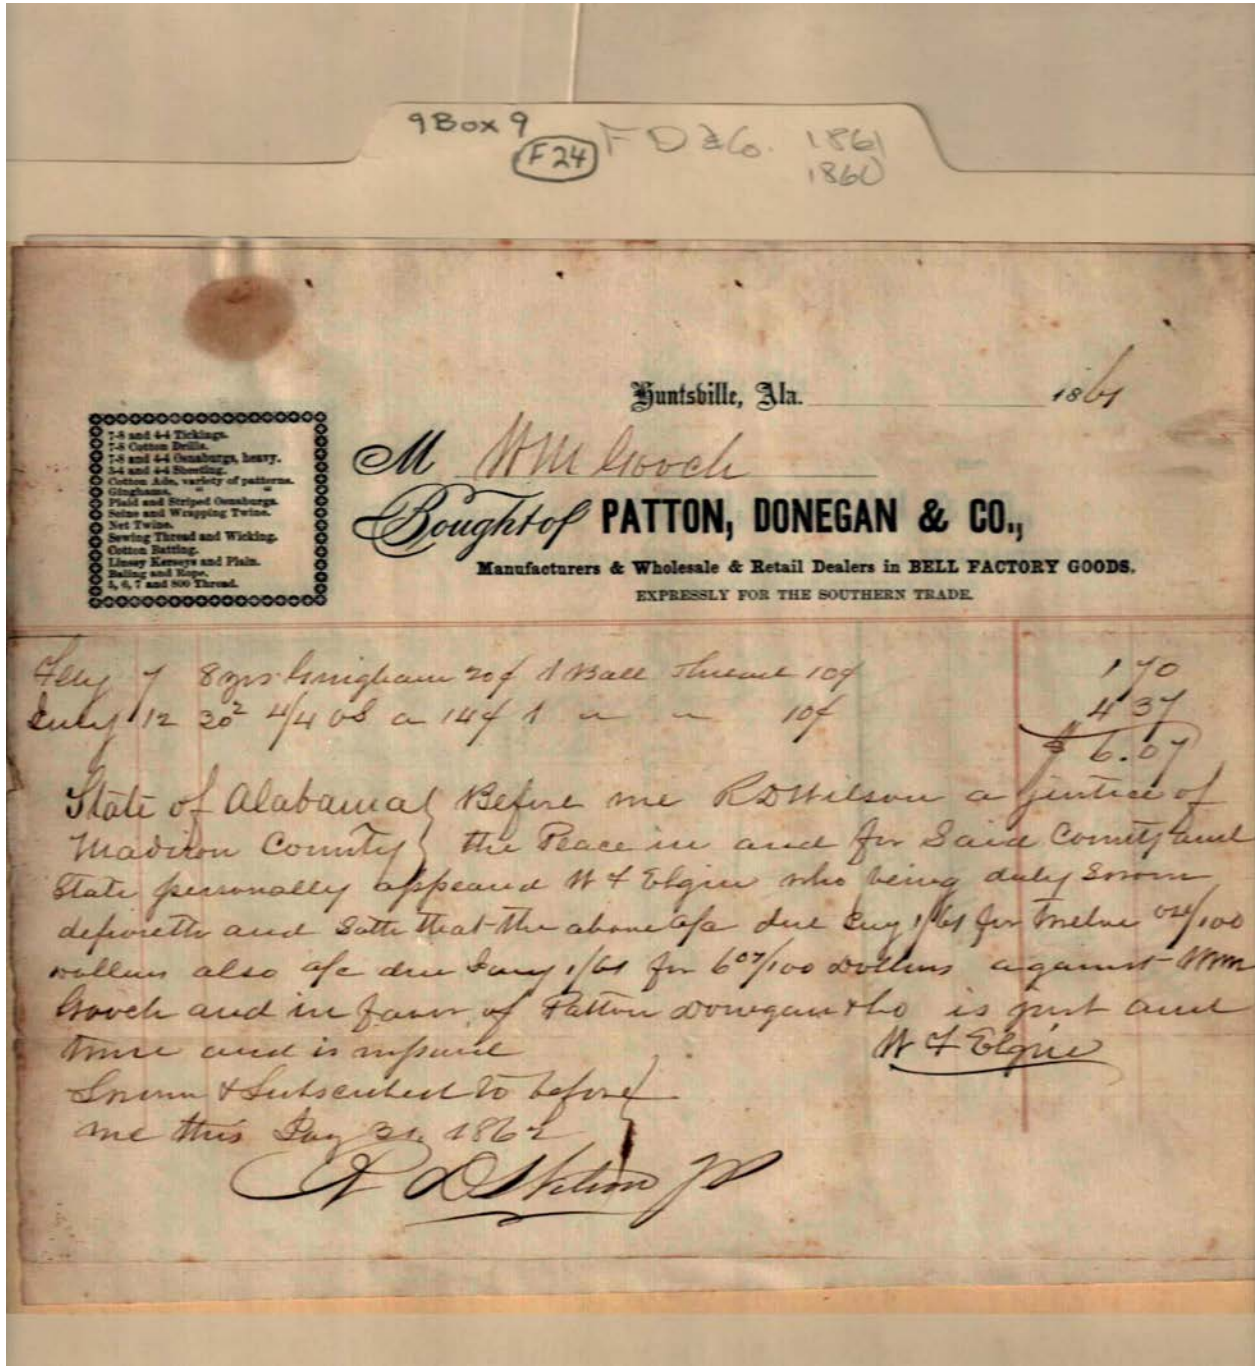 9 Box 9
F 24
F D & Co. 1861
1860
Huntsville, Ala. 1861
7-8 and 4-4 Tickings.
7-8 Cotton Drills.
7-8 and 4-4 Osnaburgs, heavy.
3-4 and 4-4 Sheeting.
Cotton Ade, variety of patterns.
Ginghams, " "
Plaid and Striped Osnaburgs.
Seine and Wrapping Twine.
Net Twine.
Sewing Thread and Wicking.
Cotton Batting.
Linsey Kerseys and Plain.
Baling and Rope.
5, 6, 7 and 800 Thread.
M Wm Gooch
Bought of PATTON, DONEGAN & CO.,
Manufacturers & Wholesale & Retail Dealers in BELL FACTORY GOODS.
EXPRESSLY FOR THE SOUTHERN TRADE.
7 8 yds Gingham 20¢ 1 Ball Thread 10¢ 1 70
July 12 30² 4/4 OS a 14¢ 1 " " 10¢ 4 37
$ 6.07
State of Alabama } Before me R D Wilson a justice of
Madison County } the Peace in and for Said County and
State personally appeard W F Elgin who being duly Sworn
deposeth and Saith that the above a/c due Jany 1/61 for Twelve /100
Dollars also a/c due Jany 1/61 for 6 07/100 Dollars against Wm
Gooch and in favor of Patton Donegan & Co is just and
true and is unpaid W F Elgin
Sworn & Subscribed to before }
me this Jany 31 1862 }
R D Wilson JP